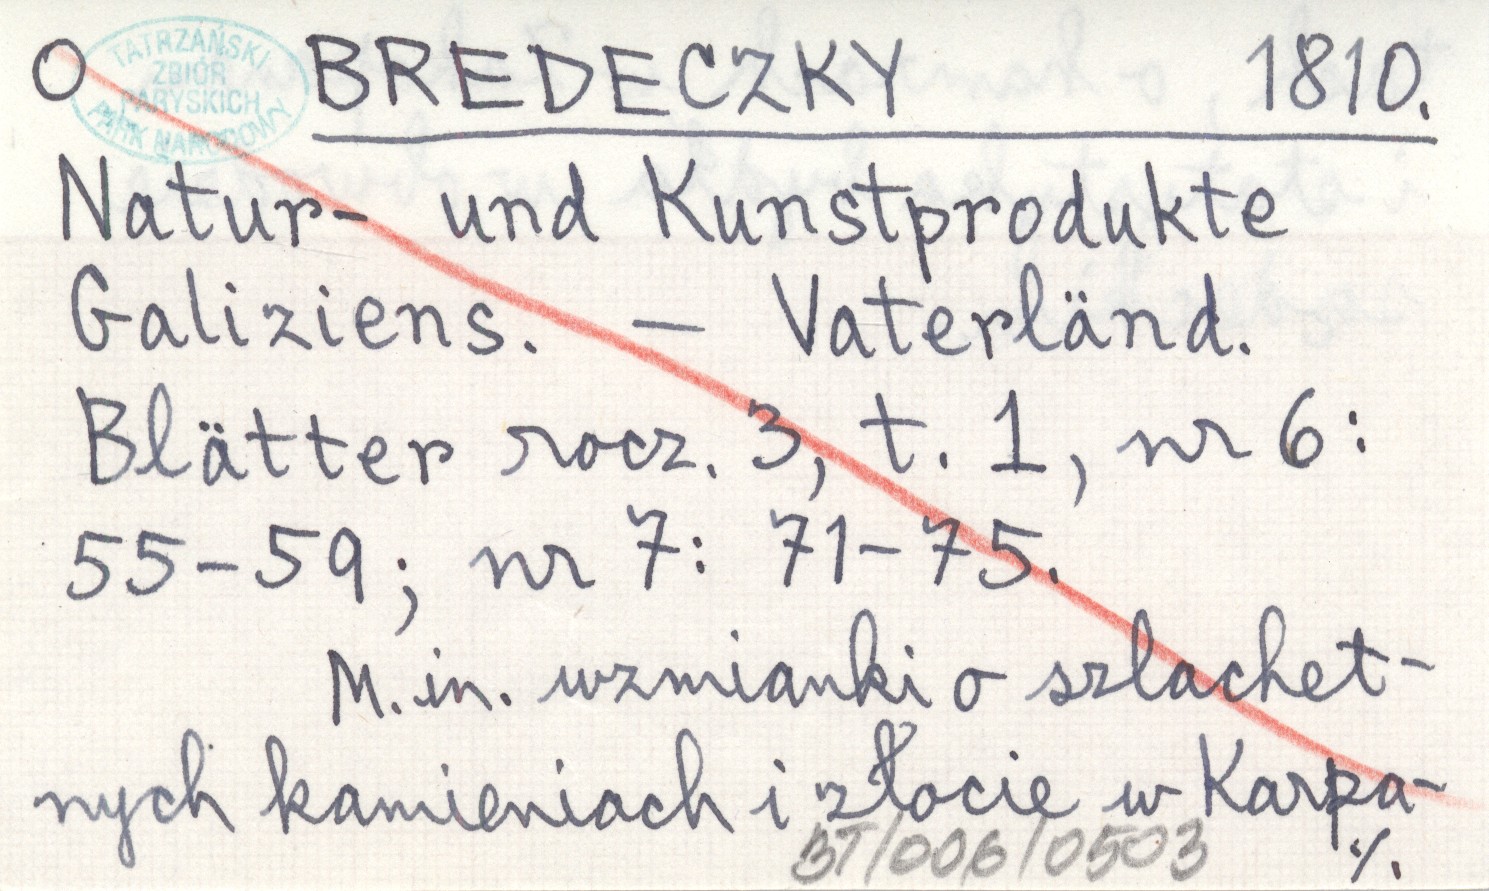 O BREDECZKY 1810.
TATRZAŃSKI
ZBIÓR
PARYSKICH
PARK NARODOWY
Natur- und Kunstprodukte
Galiziens. — Vaterländ.
Blätter rocz. 3, t. 1, nr 6:
55-59; nr 7: 71-75.
M.in. wzmianki o szlachet-
nych kamieniach i złocie w Karpa-
BT/006/0503 ·/.